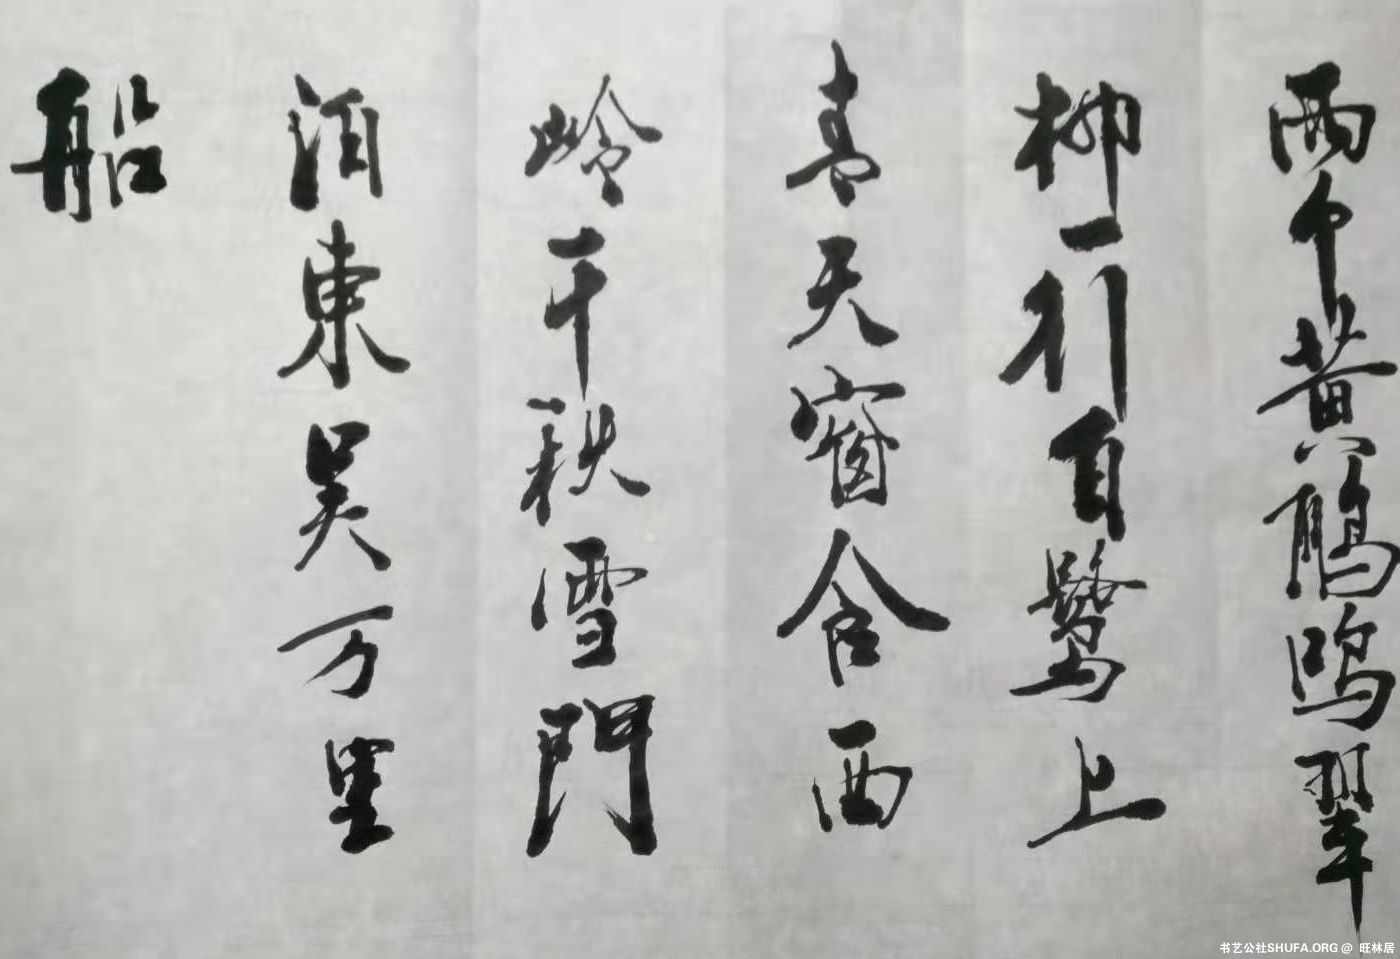 两个黄鹂鸣翠
柳一行白鹭上
青天窗含西
岭千秋雪門
泊東吴万里
船
书艺公社SHUFA.ORG @ 旺林居